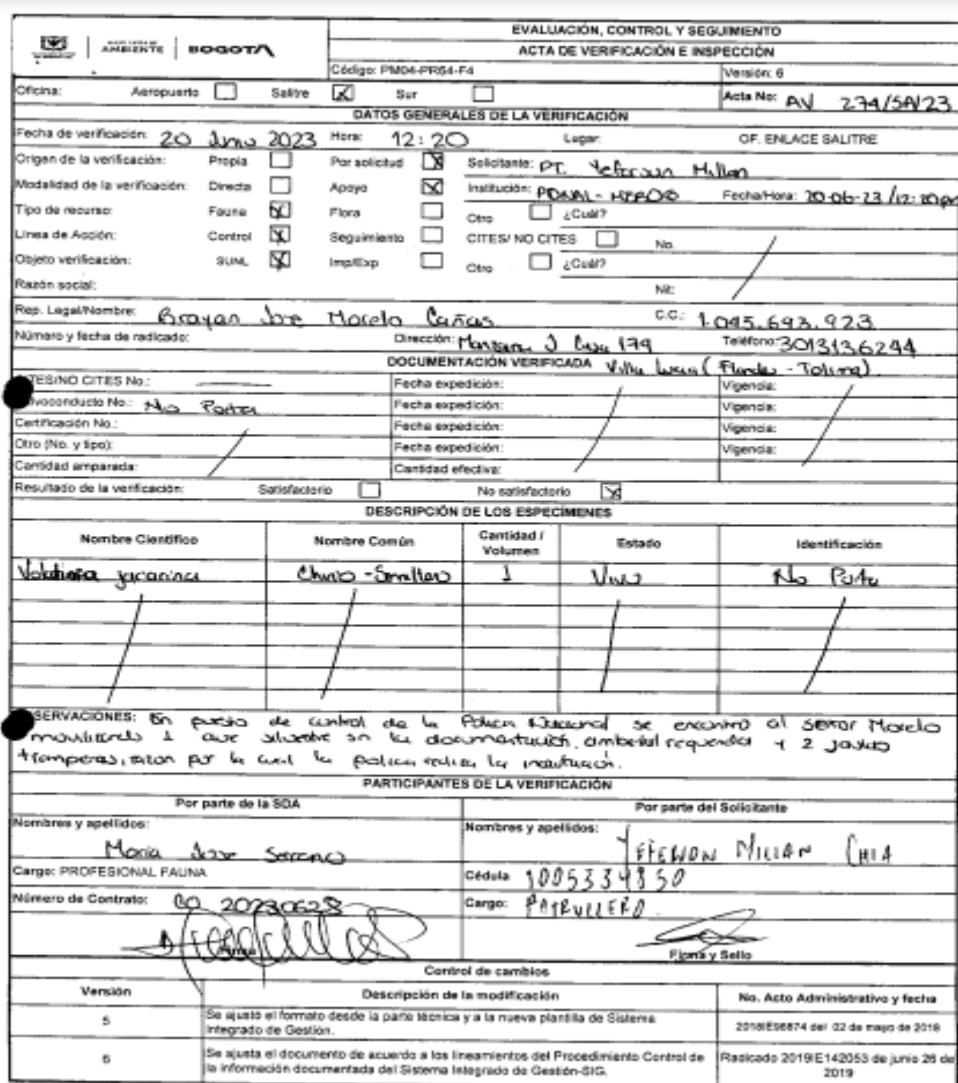 AMBIENTE BOGOTÁ
EVALUACIÓN, CONTROL Y SEGUIMIENTO
ACTA DE VERIFICACIÓN E INSPECCIÓN
Código: PM04-PR54-F4 Versión: 6
Oficina: Aeropuerto Salitre X Sur Acta No: AV 274/SA/23
DATOS GENERALES DE LA VERIFICACIÓN
Fecha de verificación: 20 Junio 2023 Hora: 12:20 Lugar: OF. ENLACE SALITRE
Origen de la verificación: Propia Por solicitud X Solicitante: PT. Yeferson Millan
Modalidad de la verificación: Directa Apoyo X Institución: PONAL - Fecha/Hora: 20-06-23 /12:20pm
Tipo de recurso: Fauna X Flora Otro ¿Cuál?
Línea de Acción: Control X Seguimiento CITES/ NO CITES No.
Objeto verificación: SUNL X Imp/Exp Otro ¿Cuál?
Razón social: Nit:
Rep. Legal/Nombre: Brayan Jose Morelo Cañas C.C.: 1.045.693.923
Número y fecha de radicado: Dirección: Manzana J Casa 174 Teléfono: 3013136244
DOCUMENTACIÓN VERIFICADA Villa (Flandes - Tolima)
CITES/NO CITES No.: Fecha expedición: Vigencia:
Salvoconducto No.: No Porta Fecha expedición: Vigencia:
Certificación No.: Fecha expedición: Vigencia:
Otro (No. y tipo): Fecha expedición: Vigencia:
Cantidad amparada: Cantidad efectiva:
Resultado de la verificación: Satisfactorio No satisfactorio X
DESCRIPCIÓN DE LOS ESPECÍMENES
Nombre Científico Nombre Común Cantidad / Volumen Estado Identificación
Volatinia jacarina Chirrio - Semillero 1 Vivo No Porta
OBSERVACIONES: En puesto de control de la Policia Nacional se encontró al señor Morelo
movilizando 1 ave silvestre sin la documentación ambiental requerida y 2 jaulas
tramperas, razon por la cual la policia realiza la incautación.
PARTICIPANTES DE LA VERIFICACIÓN
Por parte de la SDA Por parte del Solicitante
Nombres y apellidos: Nombres y apellidos:
Maria Jose Serrano YEFERSON MILLAN CHIA
Cargo: PROFESIONAL FAUNA Cédula 1005334850
Número de Contrato: 20230628 Cargo: PATRULLERO
Firma y Sello
Control de cambios
Versión Descripción de la modificación No. Acto Administrativo y fecha
5 Se ajustó el formato desde la parte técnica y a la nueva plantilla de Sistema
Integrado de Gestión. 2018IE96874 del 02 de mayo de 2018
6 Se ajusta el documento de acuerdo a los lineamientos del Procedimiento Control de
la información documentada del Sistema Integrado de Gestión-SIG. Radicado 2019IE142053 de junio 26 de
2019